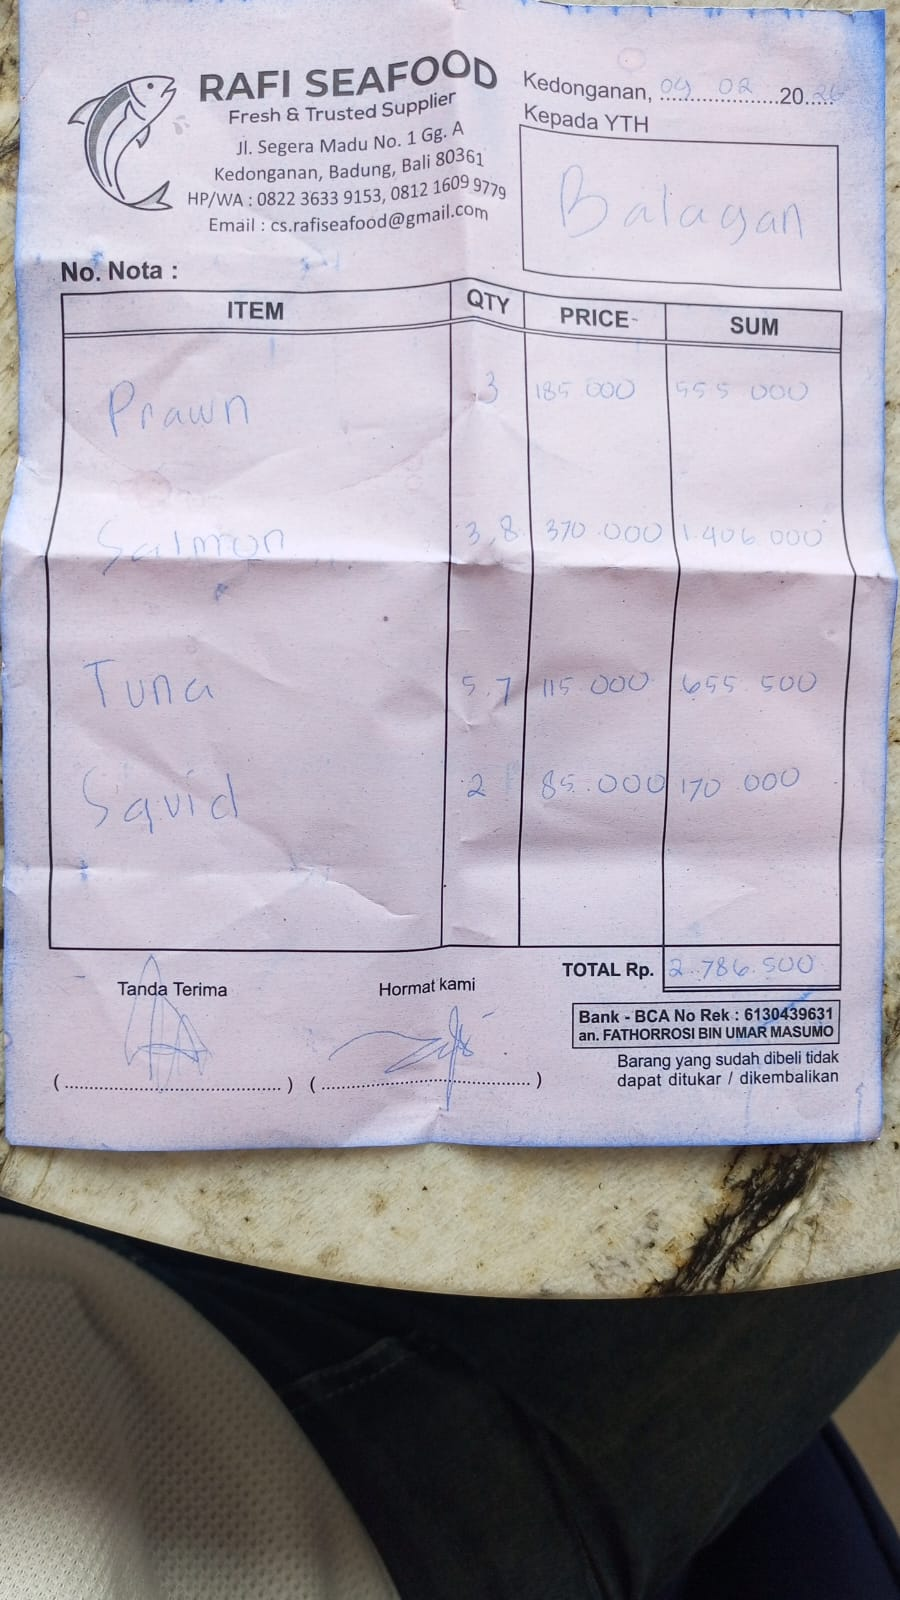 RAFI SEAFOOD
Fresh & Trusted Supplier
Jl. Segera Madu No. 1 Gg. A
Kedonganan, Badung, Bali 80361
HP/WA : 0822 3633 9153, 0812 1609 9779
Email : cs.rafiseafood@gmail.com
Kedonganan, 09 02 20
Kepada YTH
Balagan
No. Nota :
ITEM QTY PRICE SUM
Prawn 3 185 000 555 000
Salmon 3,8 370.000 1.406 000
Tuna 5.7 115.000 655.500
Squid 2 85.000 170 000
TOTAL Rp. 2.786.500
Tanda Terima
Hormat kami
Bank - BCA No Rek : 6130439631
an. FATHORROSI BIN UMAR MASUMO
Barang yang sudah dibeli tidak
dapat ditukar / dikembalikan
(..........) (..........)